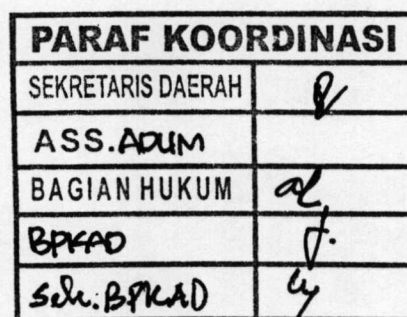 PARAF KOORDINASI
SEKRETARIS DAERAH
ASS.ADUM
BAGIAN HUKUM
BPKAD
Sek.BPKAD